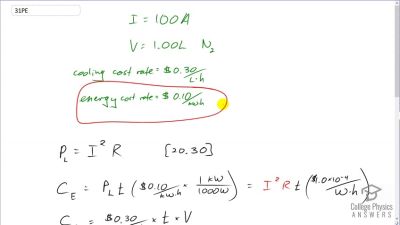 31PE
I = 100A
V = 1.00L N₂
cooling cost rate = $0.30/L·h
energy cost rate = $0.10/kW·h
P_L = I² R [20.30]
C_E = P_L t ($0.10/kW·h × 1kW/1000W) = I² R t ($1.0×10⁻⁴/W·h)
= $0.30 × t × V
College Physics
ANSWERS